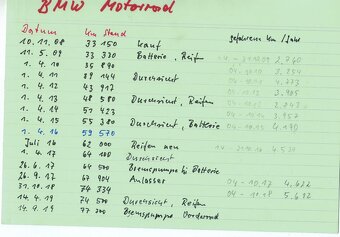 BMW Motorrad
Datum km Stand gefahrene km / Jahr
10.11.08 33 150 Kauf
11.5.09 33 330 Batterie, Reifen 04 - 31.12.09 2.760
1.4.10 35 890 04 - 10.10 3.254
1.4.11 39 144 Durchsicht 04 - 10.11 4.773
1.4.12 43 917 04 - 10.12
1.4.13 48 580 Durchsicht, Reifen
1.4.14 51 423 04 - 10.14
1.4.15 55 380 Durchsicht, Batterie 04 - 10.15 4.190
1.4.16 59 570
Juli 16 62 000 Reifen neu 4.530
1.4.17 64 100 Durchsicht
26.6.17 64 500 Bremspumpe Batterie
26.9.17 67 904 Anlasser
31.10.18 74 334 04 - 10.17 4.622
14.4.19 74 500 Durchsicht, Reifen 04 - 10.18 5.612
14.9.19 77 200 Bremspumpe Vorderrad